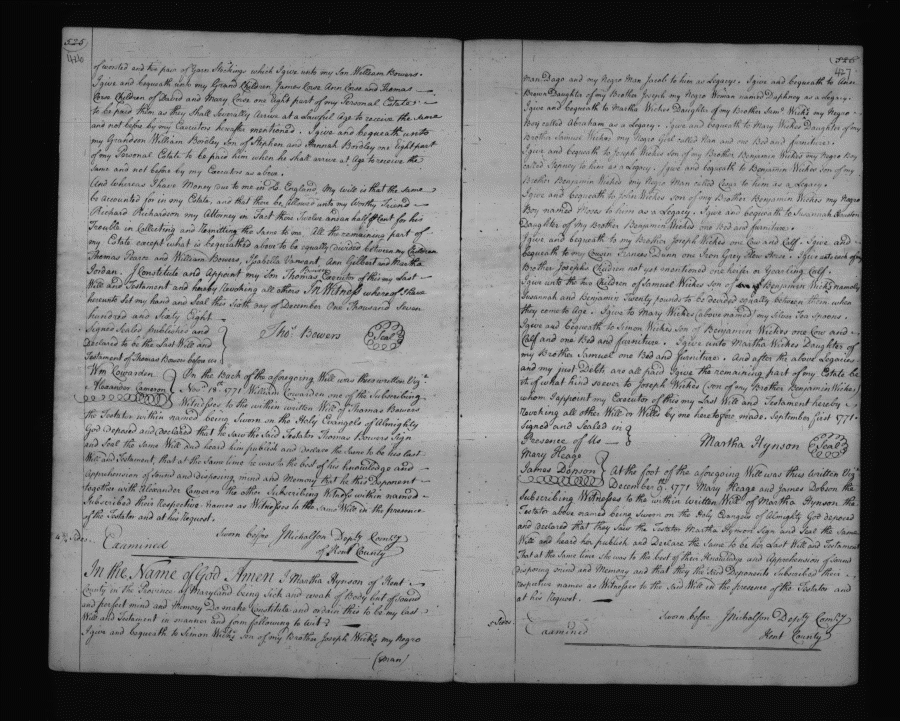 525
426
of worsted and two pair of Yarn Stockings which I give unto my Son William Bowers.
I give and bequeath unto my Grand Children James Corse Ann Corse and Thomas
Corse Children of David and Mary Corse one Eight part of my Personal Estate
to be paid them as they shall Severally Arive at a Lawfull Age to receive the same
and not before by my Executors hereafter mentioned. I give and bequeath unto
my Grandson William Bordley Son of Stephen and Hannah Bordley one Eight part
of my Personal Estate to be paid him when he shall arrive at Age to receive the
same and not before by my Executor as above.
And whereas I have Money due to me in England, My will is that the same
be accounted for in my Estate, and that there be allowed unto my Worthy Friend
Richard Richardson my Attorney in Fact there Twelve and an half Cent for his
Trouble in Collecting and Remitting the Same to me. All the remaining part of
my Estate except what is bequeathed above to be equally divided between my Children
Thomas Pearce and William Bowers, Isabella Vansant, Ann Gilbert and Martha
Jordan. I Constitute and Appoint my Son Thomas Executor of this my Last
Will and Testament and hereby Revoking all others In Witness whereof I have
hereunto Set my hand and Seal this Sixth day of December One Thousand Seven
hundred and Sixty Eight
Signed Sealed published and
Declared to be the Last Will and
Testament of Thomas Bowers before us
Thos. Bowers Seal
Wm Cowarden
Alexander Cameron
On the Back of the aforegoing Will was these written Vizt.
Novr. 19th. 1771 William Cowarden one of the Subscribing
Witnesses to the within written Will of Thomas Bowers
the Testator within named being Sworn on the Holy Evangels of Almighty
God deposed and declared that he saw the said Testator Thomas Bowers Sign
and Seal the same Will and heard him publish and declare the same to be his last
Will and Testament, that at the same time he was to the best of his knowledge and
Apprehension of Sound and disposing mind and Memory and that he this Deponent
together with Alexander Cameron the other Subscribing Witness within named
Subscribed their Respective Names as Witnesses to the same Will in the presence
of the Testator and at his Request.
4 Sides
Sworn before JNicholson Depty Comsy
of Kent County
Examined
In the Name of God Amen I Martha Hynson of Kent
County in the Province of Maryland being Sick and weak of Body but of sound
and perfect mind and Memory Do make Constitute and ordain this to be my Last
Will and Testament in manner and form following to wit
I give and bequeath to Simon Wickes Son of my Brother Joseph Wickes my Negro
(man)
525
427
man Dago and my Negro Man Jacob to him as Legacy. I give and bequeath to Ann
Brown Daughter of my Brother Joseph my Negro Woman named Daphney as a Legacy.
I give and bequeath to Martha Wickes Daughter of my Brother Saml. Wickes my Negro
Boy called Abraham as a Legacy. I give and bequeath to Mary Wickes Daughter of my
Brother Samuel Wickes my Negro Girl called Nan and one Bed and furniture.
I give and bequeath to Joseph Wickes son of my Brother Benjamin Wickes my Negro Boy
called Stepney to him as a Legacy. I give and bequeath to Benjamin Wickes son of my
Brother Benjamin Wickes my Negro Man called Cesar to him as a Legacy.
I give and bequeath to John Wickes son of my Brother Benjamin Wickes my Negro
Boy named Moses to him as a Legacy. I give and bequeath to Susannah
Daughter of my Brother Benjamin Wickes one Bed and furniture.
I give and bequeath to my Brother Joseph Wickes one Cow and Calf. I give and
bequeath to my Cousin Frances Dunn one Iron Grey Horse. I give each one of my
Brother Josephs Children not yet mentioned one heifer or Yearling Calf.
I give unto the two Children of Samuel Wickes son of Benjamin Wickes namely
Susannah and Benjamin Twenty pounds to be divided equally between them when
they come to Age. I give to Mary Wickes (above named) my Silver Tea Spoons.
I give and bequeath to Simon Wickes Son of Benjamin Wickes one Cow and
Calf and one Bed and furniture. I give unto Martha Wickes Daughter of
my Brother Samuel one Bed and furniture. And after the above Legacies
and my just Debts are all paid I give the remaining part of my Estate be
it of what kind soever to Joseph Wickes (son of my Brother Benjamin Wickes)
whom I appoint my Executor of this my Last Will and Testament hereby
Revoking all other Will or Wills by me heretofore made. September first 1771.
Signed and Sealed in
Presence of Us
Martha Hynson Seal
Mary Heage
James Dobson
At the foot of the aforegoing Will was thus written Vizt.
December 3d. 1771 Mary Heage and James Dobson the
Subscribing Witnesses to the within written Will of Martha Hynson the
Testator above named being Sworn on the Holy Evangels of Almighty God deposed
and declared that they Saw the Testator Martha Hynson Sign and Seal the same
Will and heard her publish and Declare the same to be her Last Will and Testament
that at the same time she was to the best of their Knowledge and Apprehension of Sound
disposing mind and Memory and that they the said Deponents Subscribed their
respective names as Witnesses to the said Will in the presence of the Testator and
at his Request.
Sides
Sworn before JNicholson Depty Comsy
Kent County
Examined